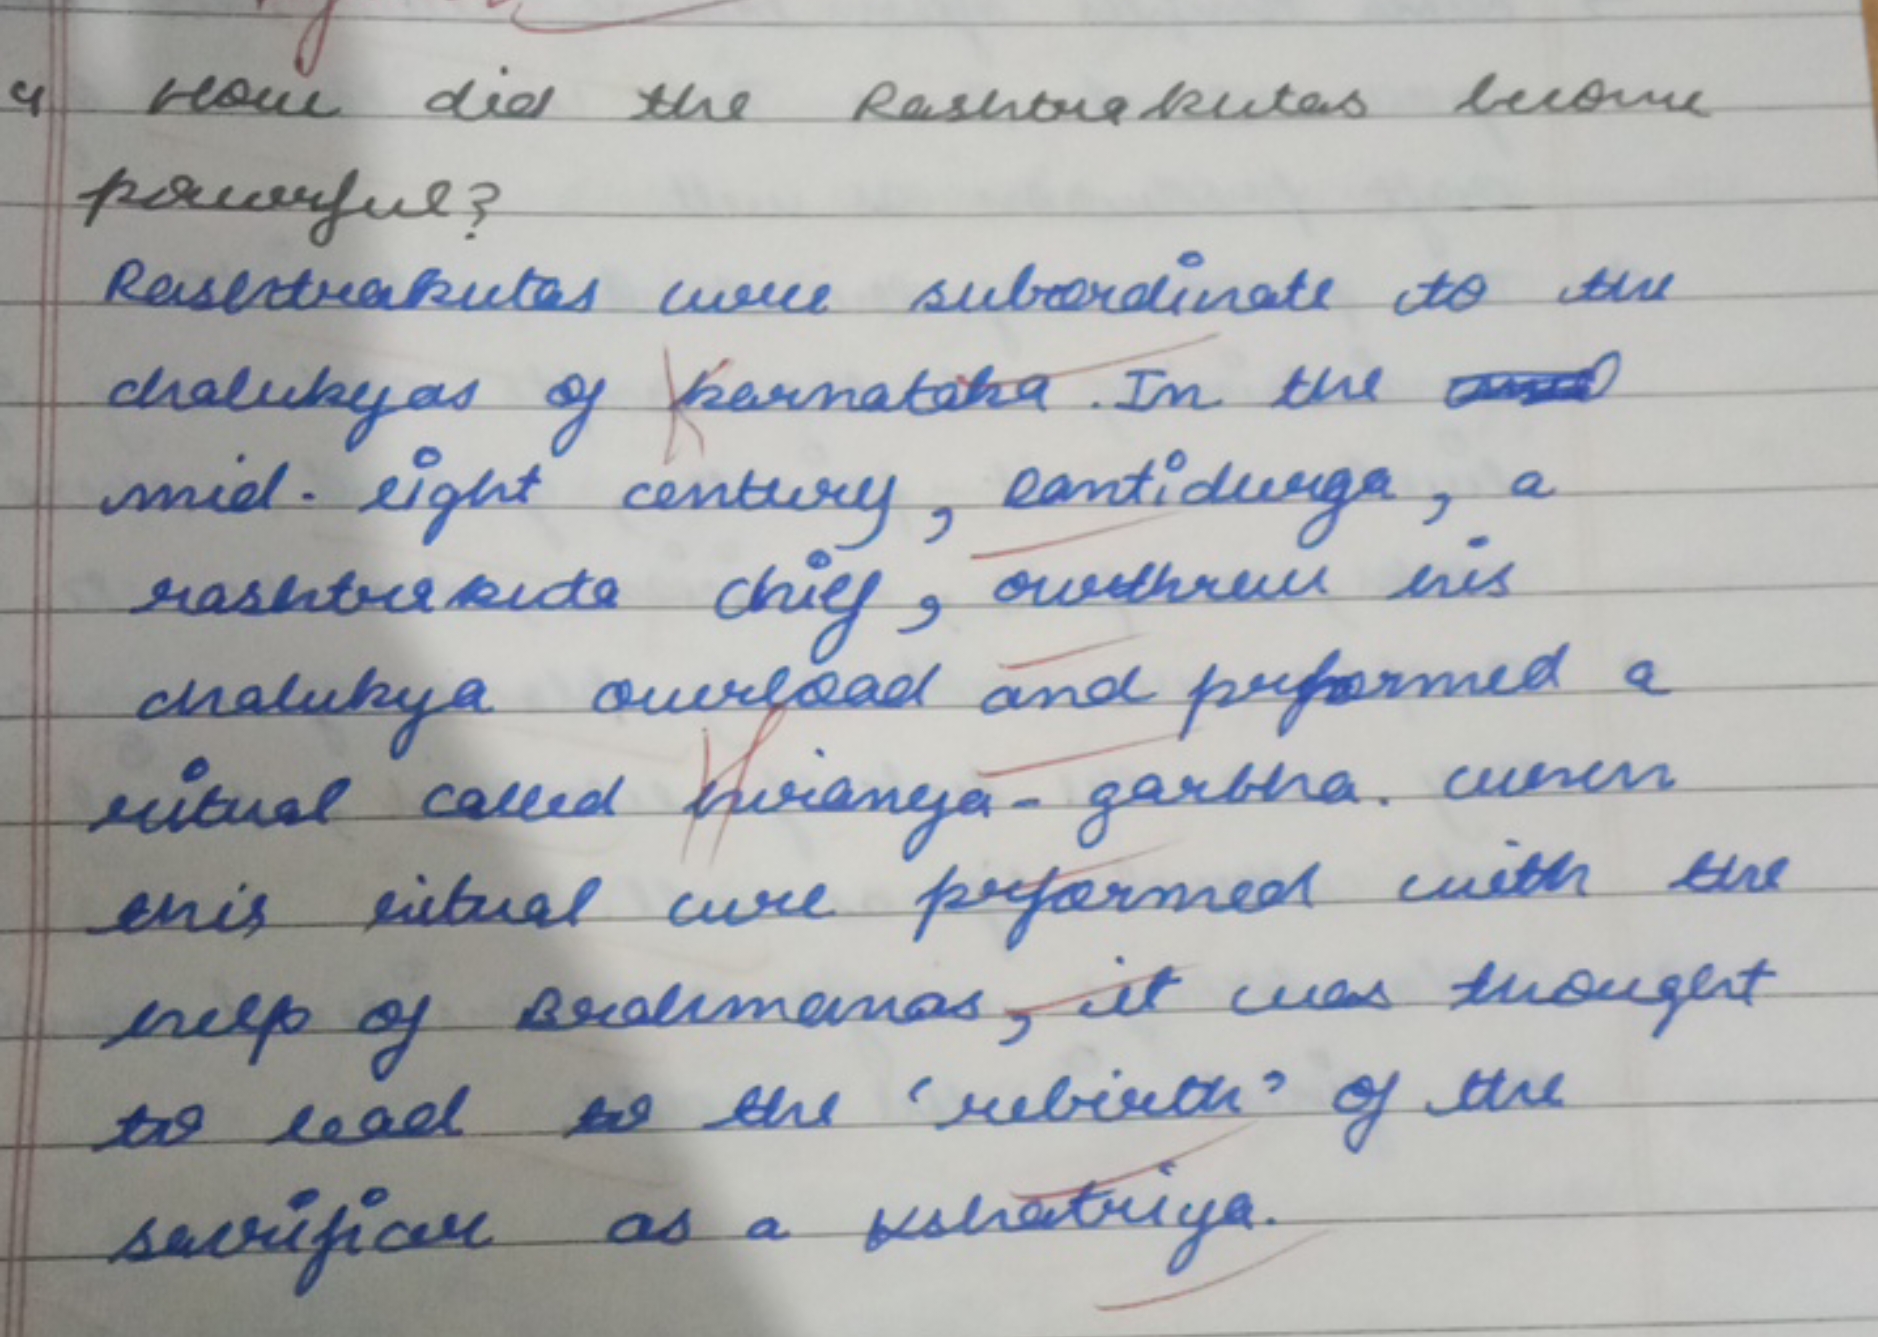 4 How did the Rashtrakutas become
powerful?
Rashtrakutas were subordinate to the
chalukyas of Karnataka. In the
mid- eight century, Dantidurga, a
rashtrakuta chief, overthrew his
chalukya overload and performed a
ritual called Hiranya- garbha. when
this ritual were performed with the
help of Brahmanas, it was thought
to lead to the 'rebirth' of the
sacrificer as a Kshatriya.